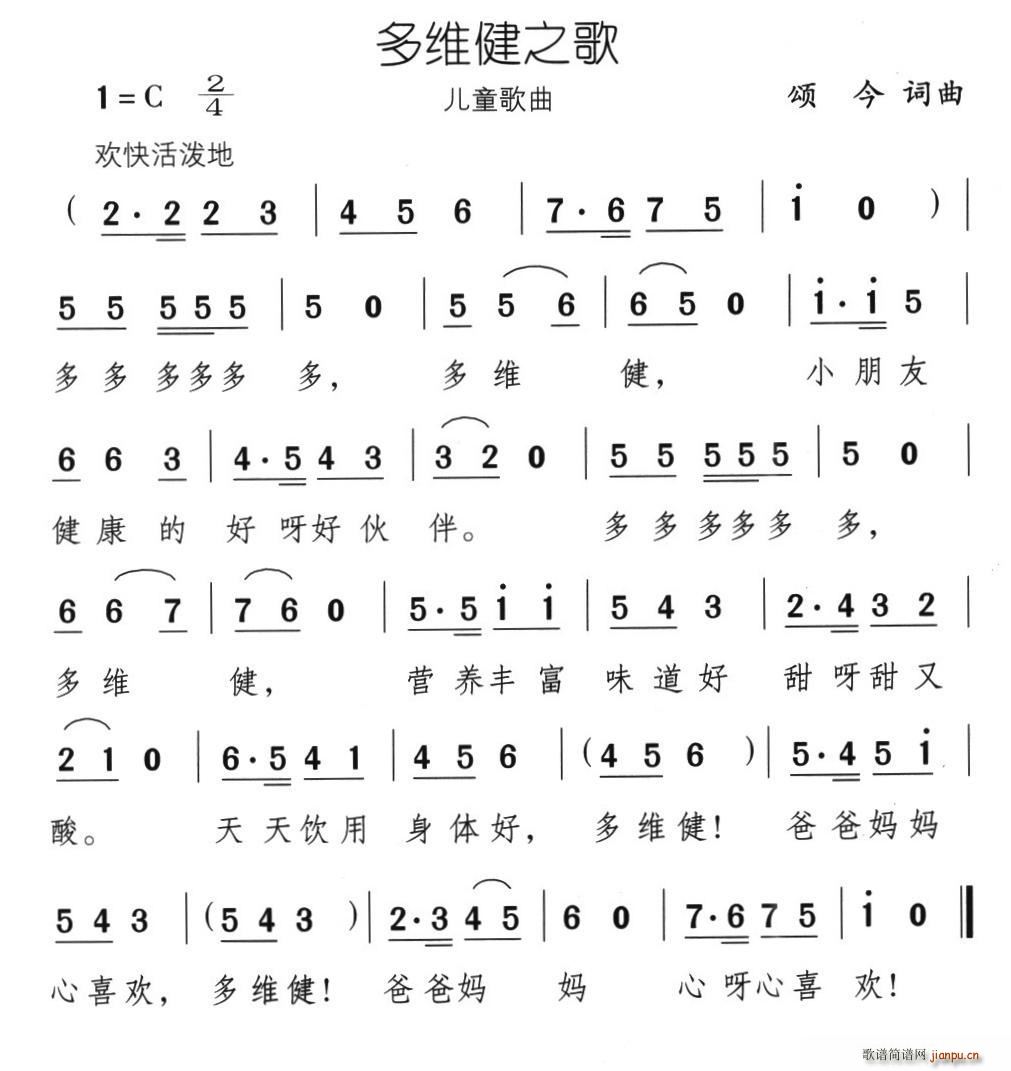 多维健之歌
1=C 2/4 儿童歌曲 颂 今 词曲
欢快活泼地
( 2·2 2 3 | 4 5 6 | 7·6 7 5 | i 0 ) |
5 5 5 5 5 | 5 0 | 5 5 6 | 6 5 0 | i·i 5 |
多 多 多多多 多, 多 维 健, 小 朋 友
6 6 3 | 4·5 4 3 | 3 2 0 | 5 5 5 5 5 | 5 0 |
健 康 的 好 呀好 伙 伴。 多 多 多多多 多,
6 6 7 | 7 6 0 | 5·5 i i | 5 4 3 | 2·4 3 2 |
多 维 健, 营 养丰 富 味 道 好 甜 呀甜 又
2 1 0 | 6·5 4 1 | 4 5 6 | (4 5 6 ) | 5·4 5 i |
酸。 天 天饮 用 身 体 好, 多 维 健! 爸 爸妈 妈
5 4 3 | (5 4 3 ) | 2·3 4 5 | 6 0 | 7·6 7 5 | i 0 ‖
心 喜 欢, 多 维 健! 爸 爸妈 妈 心 呀心 喜 欢!
歌谱简谱网 jianpu.cn